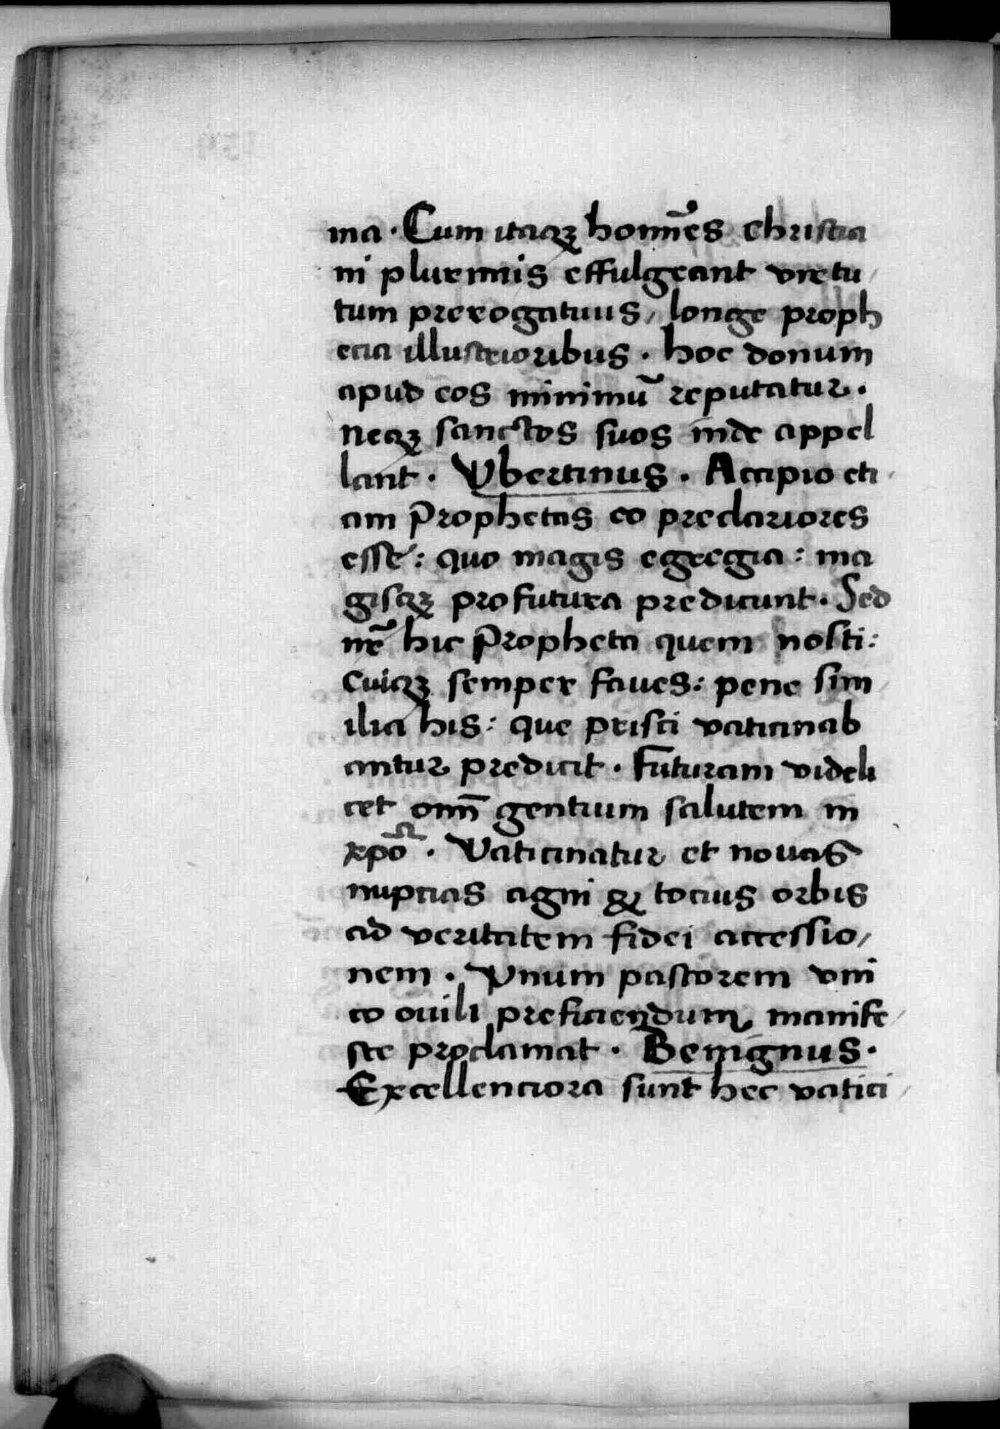 ma · Cum itaqꝫ homīes christia
ni plurimis effulgeant virtu
tum prerogatiuis, longe proph
ecia illustrioribus · hoc donum
apud eos minimū reputatur ·
neqꝫ sanctos suos inde appel
lant · Vbertinus · Accipio eti
am Prophetas eo preclariores
esse : quo magis egregia : ma
gisqꝫ profutura predicunt · Sed
nr̄ hic Propheta quem nosti :
cuiqꝫ semper faues : pene sim
ilia his : que prisci vaticinab
antur predicit · Futuram videli
cet om̄ gentium salutem in
xpō · Vaticinatur et nouas
nupcias agni ꝙ tocius orbis
ad veritatem fidei accessio,
nem · Vnum pastorem vni
co ouili preficiendum, manife
ste proclamat · Benignus ·
Excellenciora sunt hec vatici